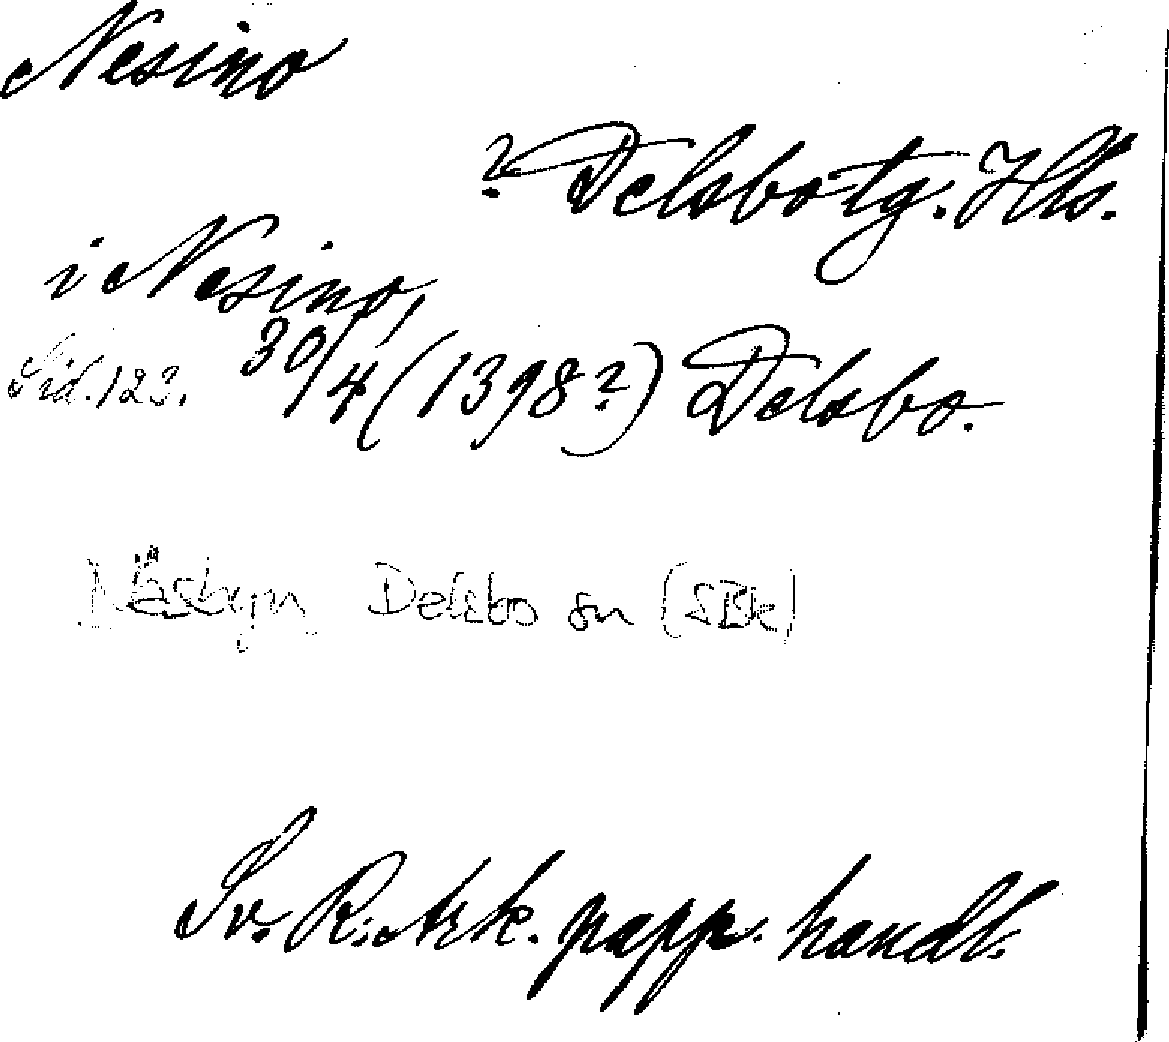 Nesino
? Delsbo tg. Hls.
i Nesino,
Sid. 123. 30/4 (1398?) Delsbo.
Näsbyn Delsbo sn (SBk)
Sv. R. Ark. papp. handl.